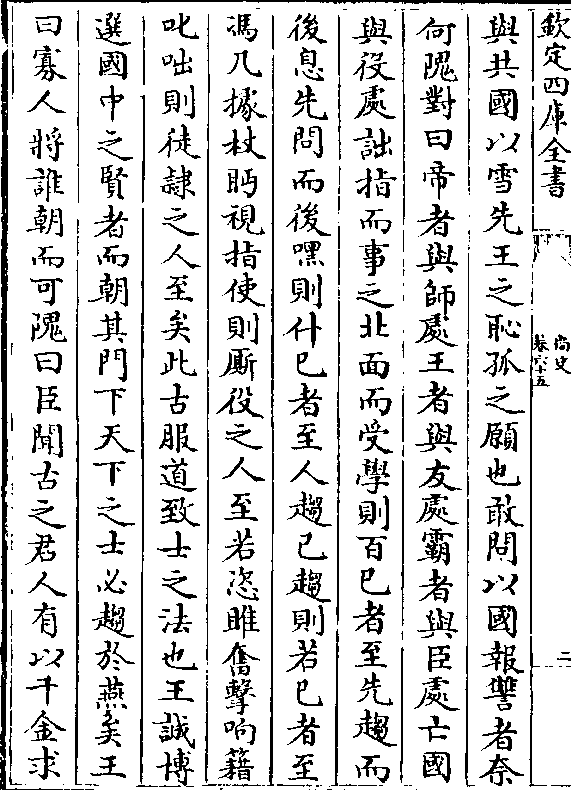 欽定四庫全書
尚史
卷六十五
二
與共國以雪先王之恥孤之願也敢問以國報讐者奈
何隗對曰帝者與師處王者與友處霸者與臣處亡國
與役處詘指而事之北面而受學則百己者至先趨而
後息先問而後嘿則什己者至人趨己趨則若己者至
馮几據杖眄視指使則厮役之人至若恣睢奮擊呴籍
叱咄則徒隷之人至矣此古服道致士之法也王誠博
選國中之賢者而朝其門下天下之士必趨於燕矣王
曰寡人將誰朝而可隗曰臣聞古之君人有以千金求